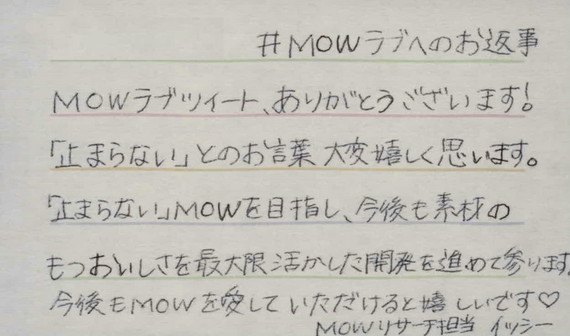 #MOWラブへのお返事
MOWラブツイート、ありがとうございます!
「止まらない」とのお言葉 大変嬉しく思います。
「止まらない」MOWを目指し、今後も素材の
もつおいしさを最大限活かした開発を進めて参ります
今後もMOWを愛していただけると嬉しいです♡
MOWリサーチ担当 イッシー